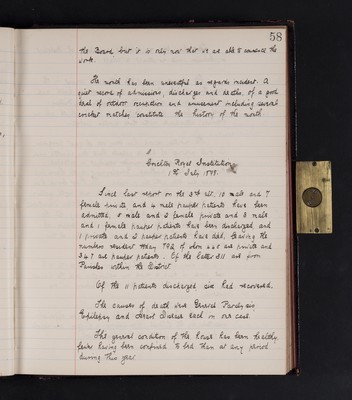 58
the Board but it is only now that we are able to commence the
work.
The month has been uneventful as regards incident. A
quiet record of admissions, discharges and deaths, of a good
deal of outdoor recreation and amusement including several
cricket matches constitute the history of the month
Crichton Royal Institution
1st July 1898.
Since last report on the 3rd ult, 10 male and 7
female private and 4 male pauper patients have been
admitted, 5 male and 2 female private and 3 male
and 1 female pauper patients have been discharged and
1 private and 2 pauper patients have died, leaving the
numbers resident today 792 of whom 445 are private and
347 are pauper patients. Of the latter 311 are from
Parishes within the District.
Of the 11 patients discharged six had recovered.
The causes of death were General Paralysis,
Epilepsy and Heart Disease each in one case.
The general condition of the house has been healthy,
fewer having been confined to bed than at any period
during this year